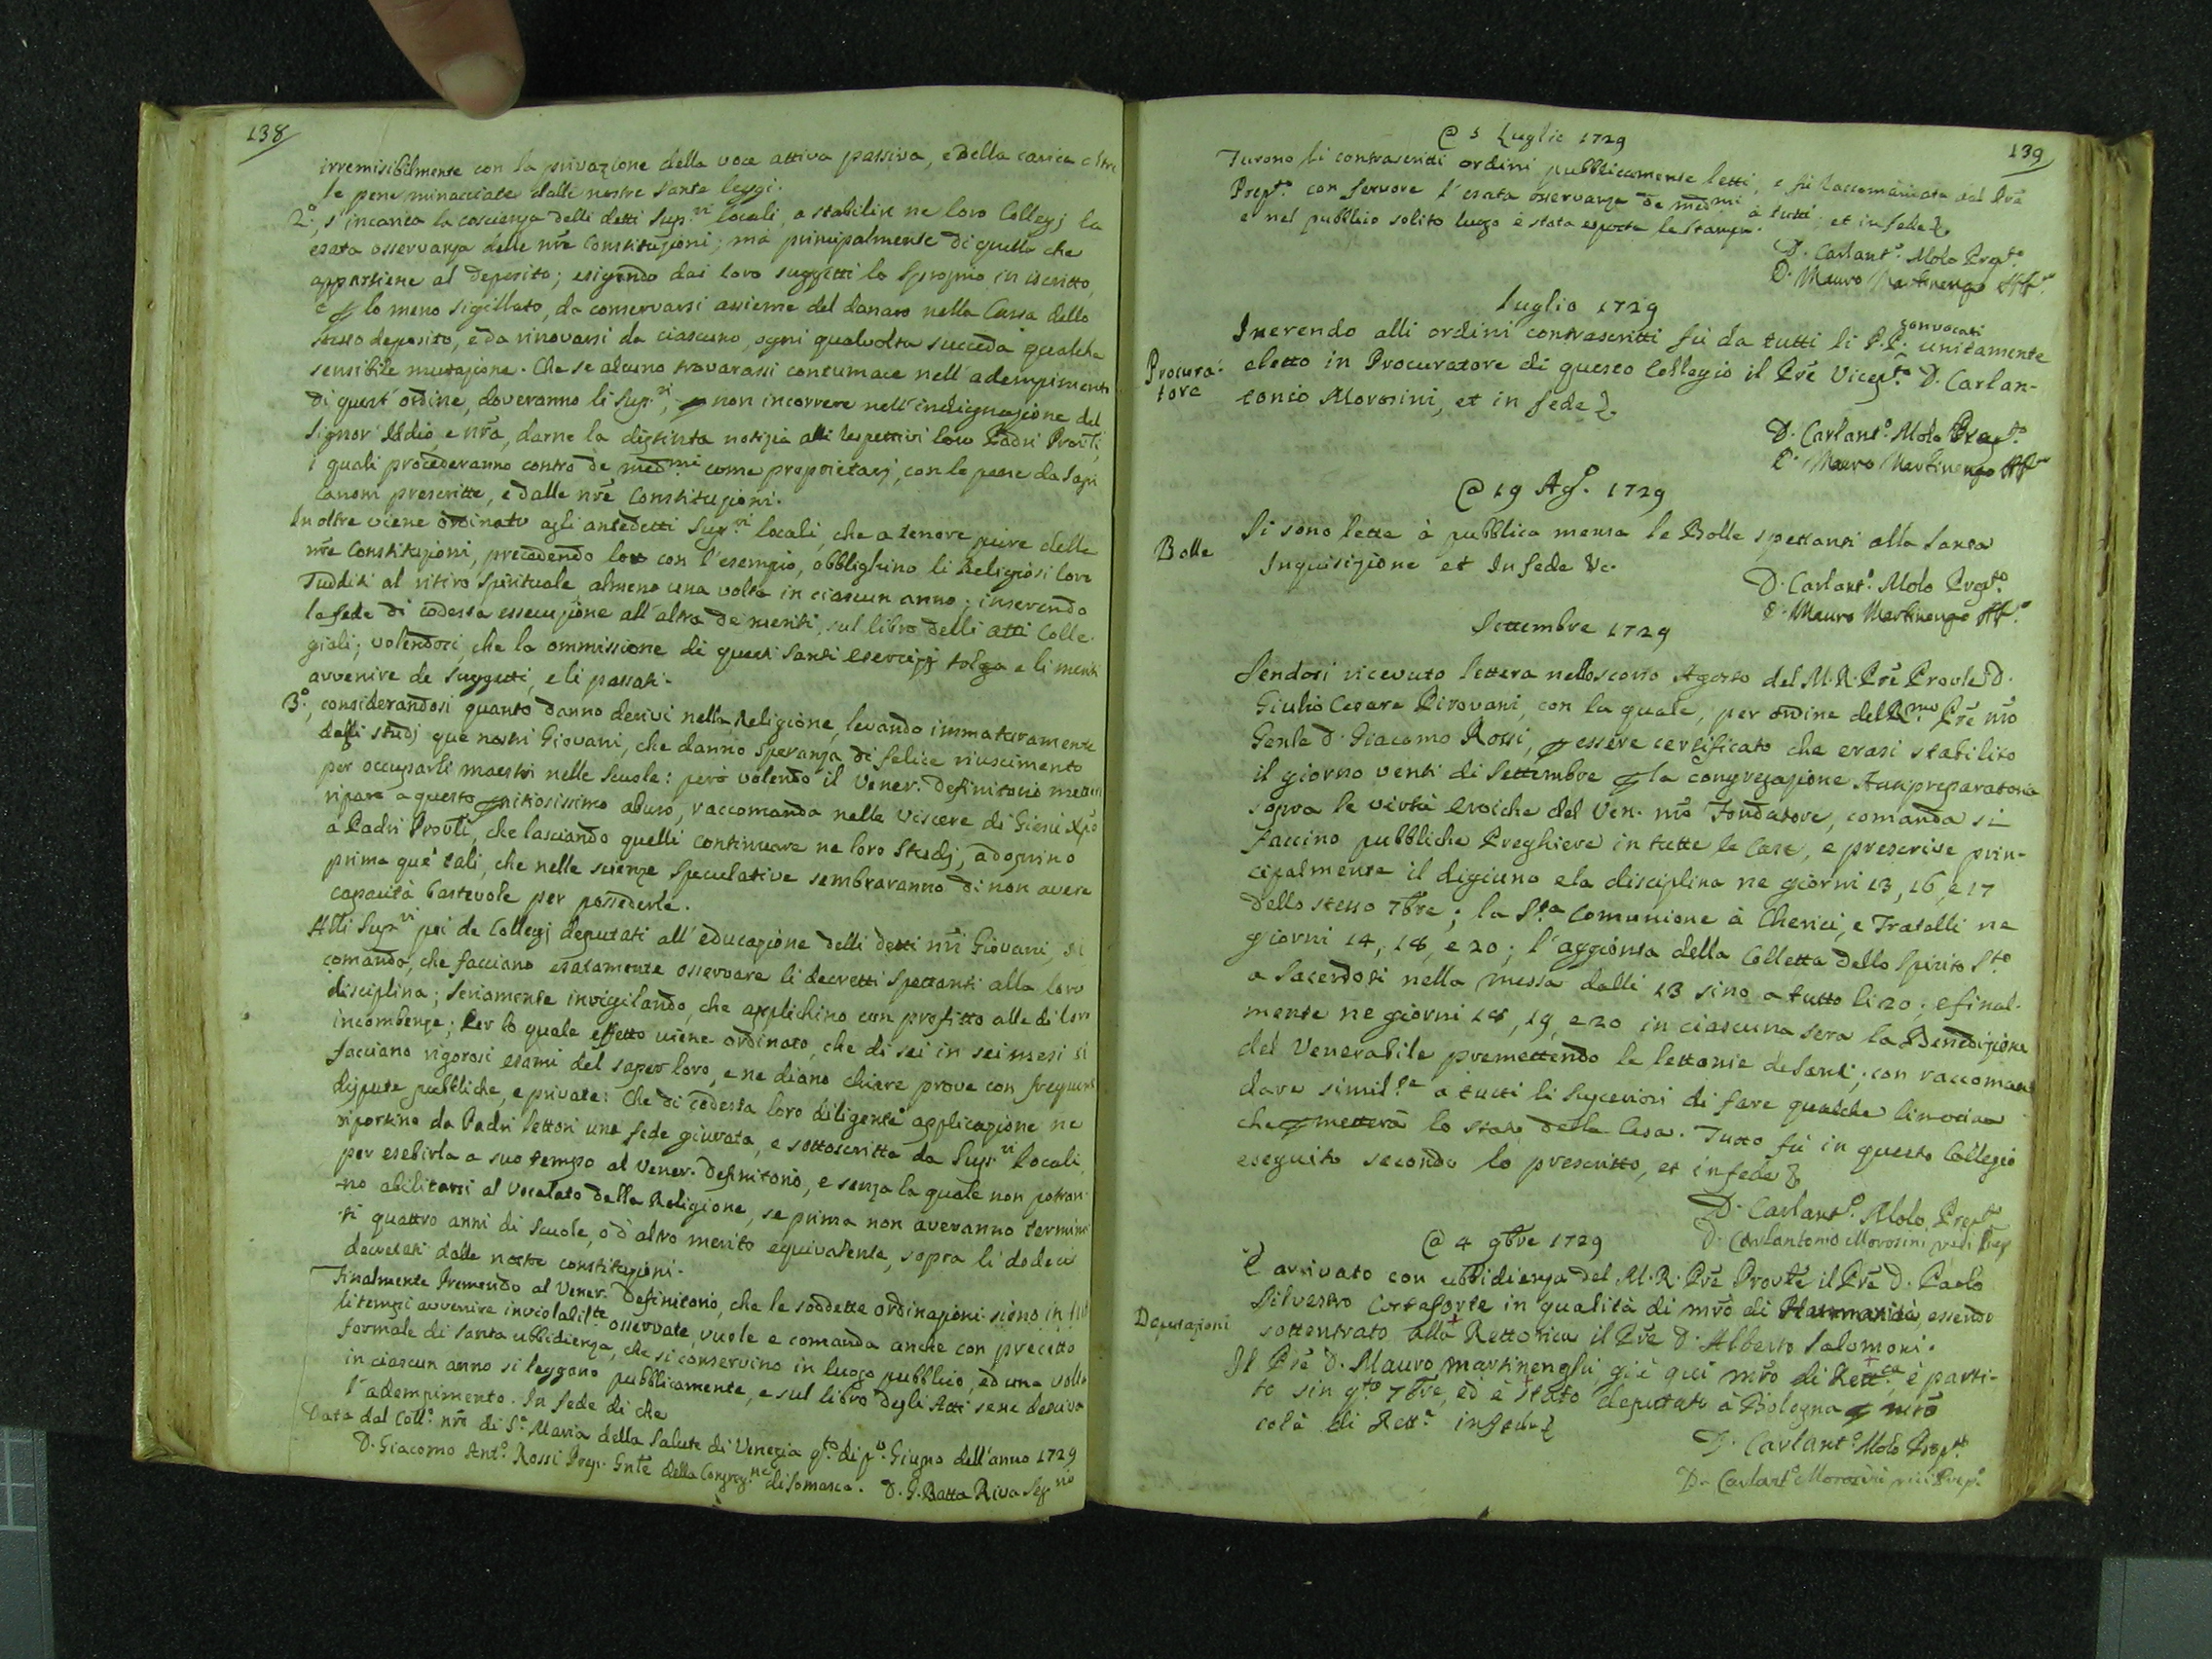 138
irremisibilmente con la privazione della voce attiva passiva, e della carica oltre
le pene minacciate dalle nostre sante leggi.
2.° s'incarica la coscienza delli detti Sup.ri locali, a stabilire ne loro Collegj la
esata osservanza delle nre Constituzioni; mà principalmente di quella che
appartiene al deposito; esigendo dai loro suggetti lo Sproprio in iscritto,
è p lo meno sigillato, da conservarsi assieme del danaro nella Cassa dello
stesso deposito, e da rinovarsi da ciascuno, ogni qualvolta succeda qualche
sensibile mutazione. Che se alcuno trovarassi contumace nell'adempimento
di quest'ordine, doveranno li Sup.ri, p non incorrere nell'indignazione del
Signor Iddio e nra, darne la distinta notizia alli respettivi loro Padri Provli,
i quali procederanno contro de medmi come proprietarj, con le pene da Sagri
Canoni prescritte, e dalle nre Constituzioni.
Inoltre viene ordinato agli antedetti Sup.ri locali, che a tenore pure delle
nre Constituzioni, precedendo loro con l'esempio, obblighino li Religiosi loro
Sudditi al ritiro Spirituale, almeno una volta in ciascun anno; inserendo
la fede di codessa essecuzione all'altra de meriti, sul libro delli atti Colle-
giali; volendosi, che la ommissione di questi Santi Esercizj tolga e li meriti
avvenire de Suggetti, e li passati.
3.° considerandosi quanto danno derivi nella Religione, levando immaturamente
dalli studj que nostri Giovani, che danno Speranza di felice riuscimento
per occuparli maestri nelle Scuole: però volendo il Vener. Definitorio mettere
riparo a questo pnitiosissimo abuso, raccomanda nelle Viscere di Giesù Xpo
a Padri Provli, che lasciando quelli continuare ne loro Studj, adoprino
prima que' tali, che nelle scienze Speculative sembraranno di non avere
capacità bastevole per possederle.
Alli Sup.ri poi de Collegj deputati all'educazione delli detti nri Giovani, si
comanda, che facciano esatamente osservare li decretti Spettanti alla loro
disciplina; Seriamente invigilando, che applichino con profitto alle di loro
incombenze; Per lo quale effetto viene ordinato, che di sei in sei mesi si
facciano rigorosi esami del saper loro, e ne diano chiare prove con frequenti
dispute pubbliche, e private: Che di codesta loro diligente applicazione ne
riportino da Padri Lettori una fede giurata, e sottoscritta da Sup.ri Locali,
per esebirla a suo tempo al Vener. Definitorio, e senza la quale non potran-
no abilitarsi al Vocalato della Religione, se prima non averanno termina-
ti quattro anni di Scuole, ò d'altro merito equivalente, sopra li dodeci
decretati dalle nostre constituzioni.
Finalmente Premendo al Vener. Definitorio, che le soddette ordinazioni sieno in tutti
li tempi avvenire inviolabil.te osservate, vuole e comanda anche con precetto
formale di santa ubbidienza, che si conservino in luogo pubblico, ed una volta
in ciascun anno si leggano pubblicamente, e sul libro degli Atti sene descriva
l'adempimento. In fede di che
Data dal Coll.° nro di S.a Maria della Salute di Venezia q.to di p.° Giugno dell'anno 1729
D. Giacomo Ant.° Rossi Prep. Gnle della Congreg.ne di Somasca. D. G. Batta Riva Seg.rio
139
@ 5 Luglio 1729
Furono li contrascritti ordini pubblicamente letti, e fù raccomandata dal Pre
Prep.to con fervore l'esata osservanza de medmi à tutti; et in fede &
e nel pubblico solito luogo è stata esposta la stampa.
D. Carlant.° Molo Prep.to
D. Mauro Martinengo
Luglio 1729
Procura-
tore
Inerendo alli ordini contrascritti fù da tutti li P.P. convocati unitamente
eletto in Procuratore di questo Collegio il Pre Vicep.to D. Carlan-
tonio Morosini, et in fede &
D. Carlant.° Molo Prep.to
D. Mauro Martinengo
@ 19 Ag.° 1729
Bolle
Si sono lette à pubblica mensa le Bolle spettanti alla Santa
Inquisizione et In fede &c.
D. Carlant.° Molo Prep.to
D. Mauro Martinengo
Settembre 1729
Sendosi ricevuta lettera nello scorso Agosto del M.R. Pre Provle D.
Giulio Cesare Pirovani, con la quale, per ordine del Rmo Pre nro
Genle D. Giacomo Rossi, p essere certificato che erasi stabilito
il giorno venti di Settembre p la congregazione Antipreparatoria
sopra le virtù eroiche del Ven. nro Fondatore, comanda si
faccino pubbliche Preghiere in tutte le Case, e prescrive prin-
cipalmente il digiuno e la disciplina ne giorni 13, 16, e 17
dello stesso 7bre; la S.ta Comunione à Cherici, e Fratelli ne
giorni 14, 18, e 20; l'aggionta della Colletta dello Spirito S.to
a Sacerdoti nella messa dalli 13 sino a tutto li 20; e final-
mente ne giorni 18, 19, e 20 in ciascuna sera la Benedizione
del Venerabile premettendo le lettanie de Santi; con raccoman-
dare simil.te a tutti li Superiori di fare qualche limosina
che pmetterà lo stato della Casa. Tutto fù in questo Collegio
eseguito secondo lo prescritto, et in fede &
D. Carlant.° Molo Prep.to
D. Carlantonio Morosini vice Prep
@ 4 9bre 1729
Deputazioni
È arrivato con ubbidienza del M.R. Pre Provle il Pre D. Paolo
Silvestro Cortaforte in qualità di mro di Hummanità essendo
sottentrato alla Rettorica il Pre D. Alberto Salomoni.
Il Pre D. Mauro Martinenghi, già qui mro di Rett.ca, è parti-
to sin q.to 7bre, ed è stato deputato à Bologna p mro
colà di Rett.a in fede &
D. Carlant.° Molo Prep.to
D. Carlant.° Morosini vice Prep.°